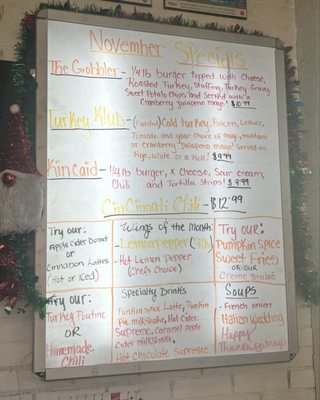 November Specials
The Gobbler - 1/4 lb burger topped with Cheese,
Roasted Turkey, Stuffing, Turkey Gravy,
Sweet Potato Chips and Served with a
Cranberry Jalapeno mayo! $10.99
Turkey Klub - Cold turkey, Bacon, Lettuce,
Tomato and your choice of mayo, mustard
or Cranberry Jalapeno mayo! Served on
Rye, White or a Roll! $9.99
Kincaid - 1/4 lb burger, x Cheese, Sour cream,
Chili and Tortilla Strips! $9.99
Cincinnati Chili - $12.99
Try our:
Apple Cider Donut
or
Cinnabon Lattes
(Hot or Iced)
Wings of the month:
- Lemon Pepper
- Hot Lemon Pepper
(Chef's Choice)
Try our:
Pumpkin Spice
Sweet Fries
OR OUR
Creme Brulee
Try our:
Turkey Poutine
OR
Homemade
Chili
Specialty Drinks
Pumpkin Spice Latte, Pumpkin
Pie milkshake, Hot Cider
Supreme, Caramel Apple
Cider milkshake,
Hot Chocolate Supreme
Soups
- French onion
Italian Wedding
Happy
Thanksgiving